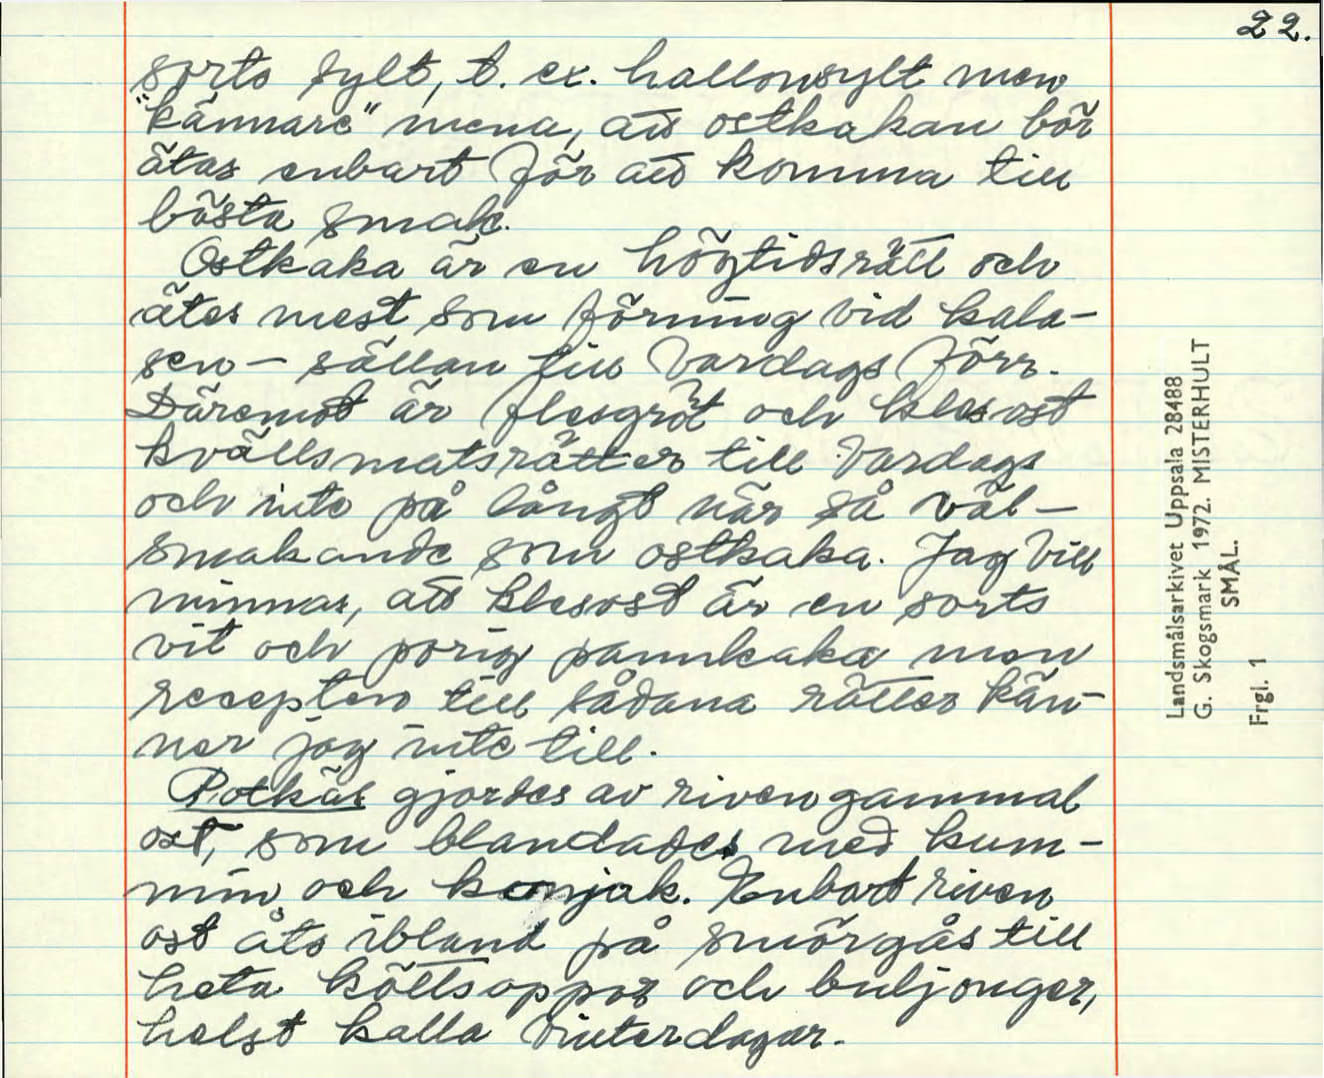 22.
sorts sylt, t. ex. hallonsylt men
"kännare" mena, att ostkakan bör
ätas enbart för att komma till
bästa smak.
Ostkaka är en högtidsrätt och
ätes mest som förning vid kala-
sen - sällan till vardags förr.
Däremot är flesgröt och klesost
kvällsmatsrätter till vardags
och inte på långt när så väl-
smakande som ostkaka. Jag vill
minnas, att klesost är en sorts
vit och porig pannkaka men
recepten till sådana rätter kän-
ner jag inte till.
Potkäs gjordes av riven gammal
ost, som blandades med kum-
min och konjak. Enbart riven
ost åts ibland på smörgås till
heta köttsoppor och buljonger,
helst kalla vinterdagar.
Landsmålsarkivet Uppsala 28488
G. Skogsmark 1972. MISTERHULT
SMÅL.
Frgl. 1